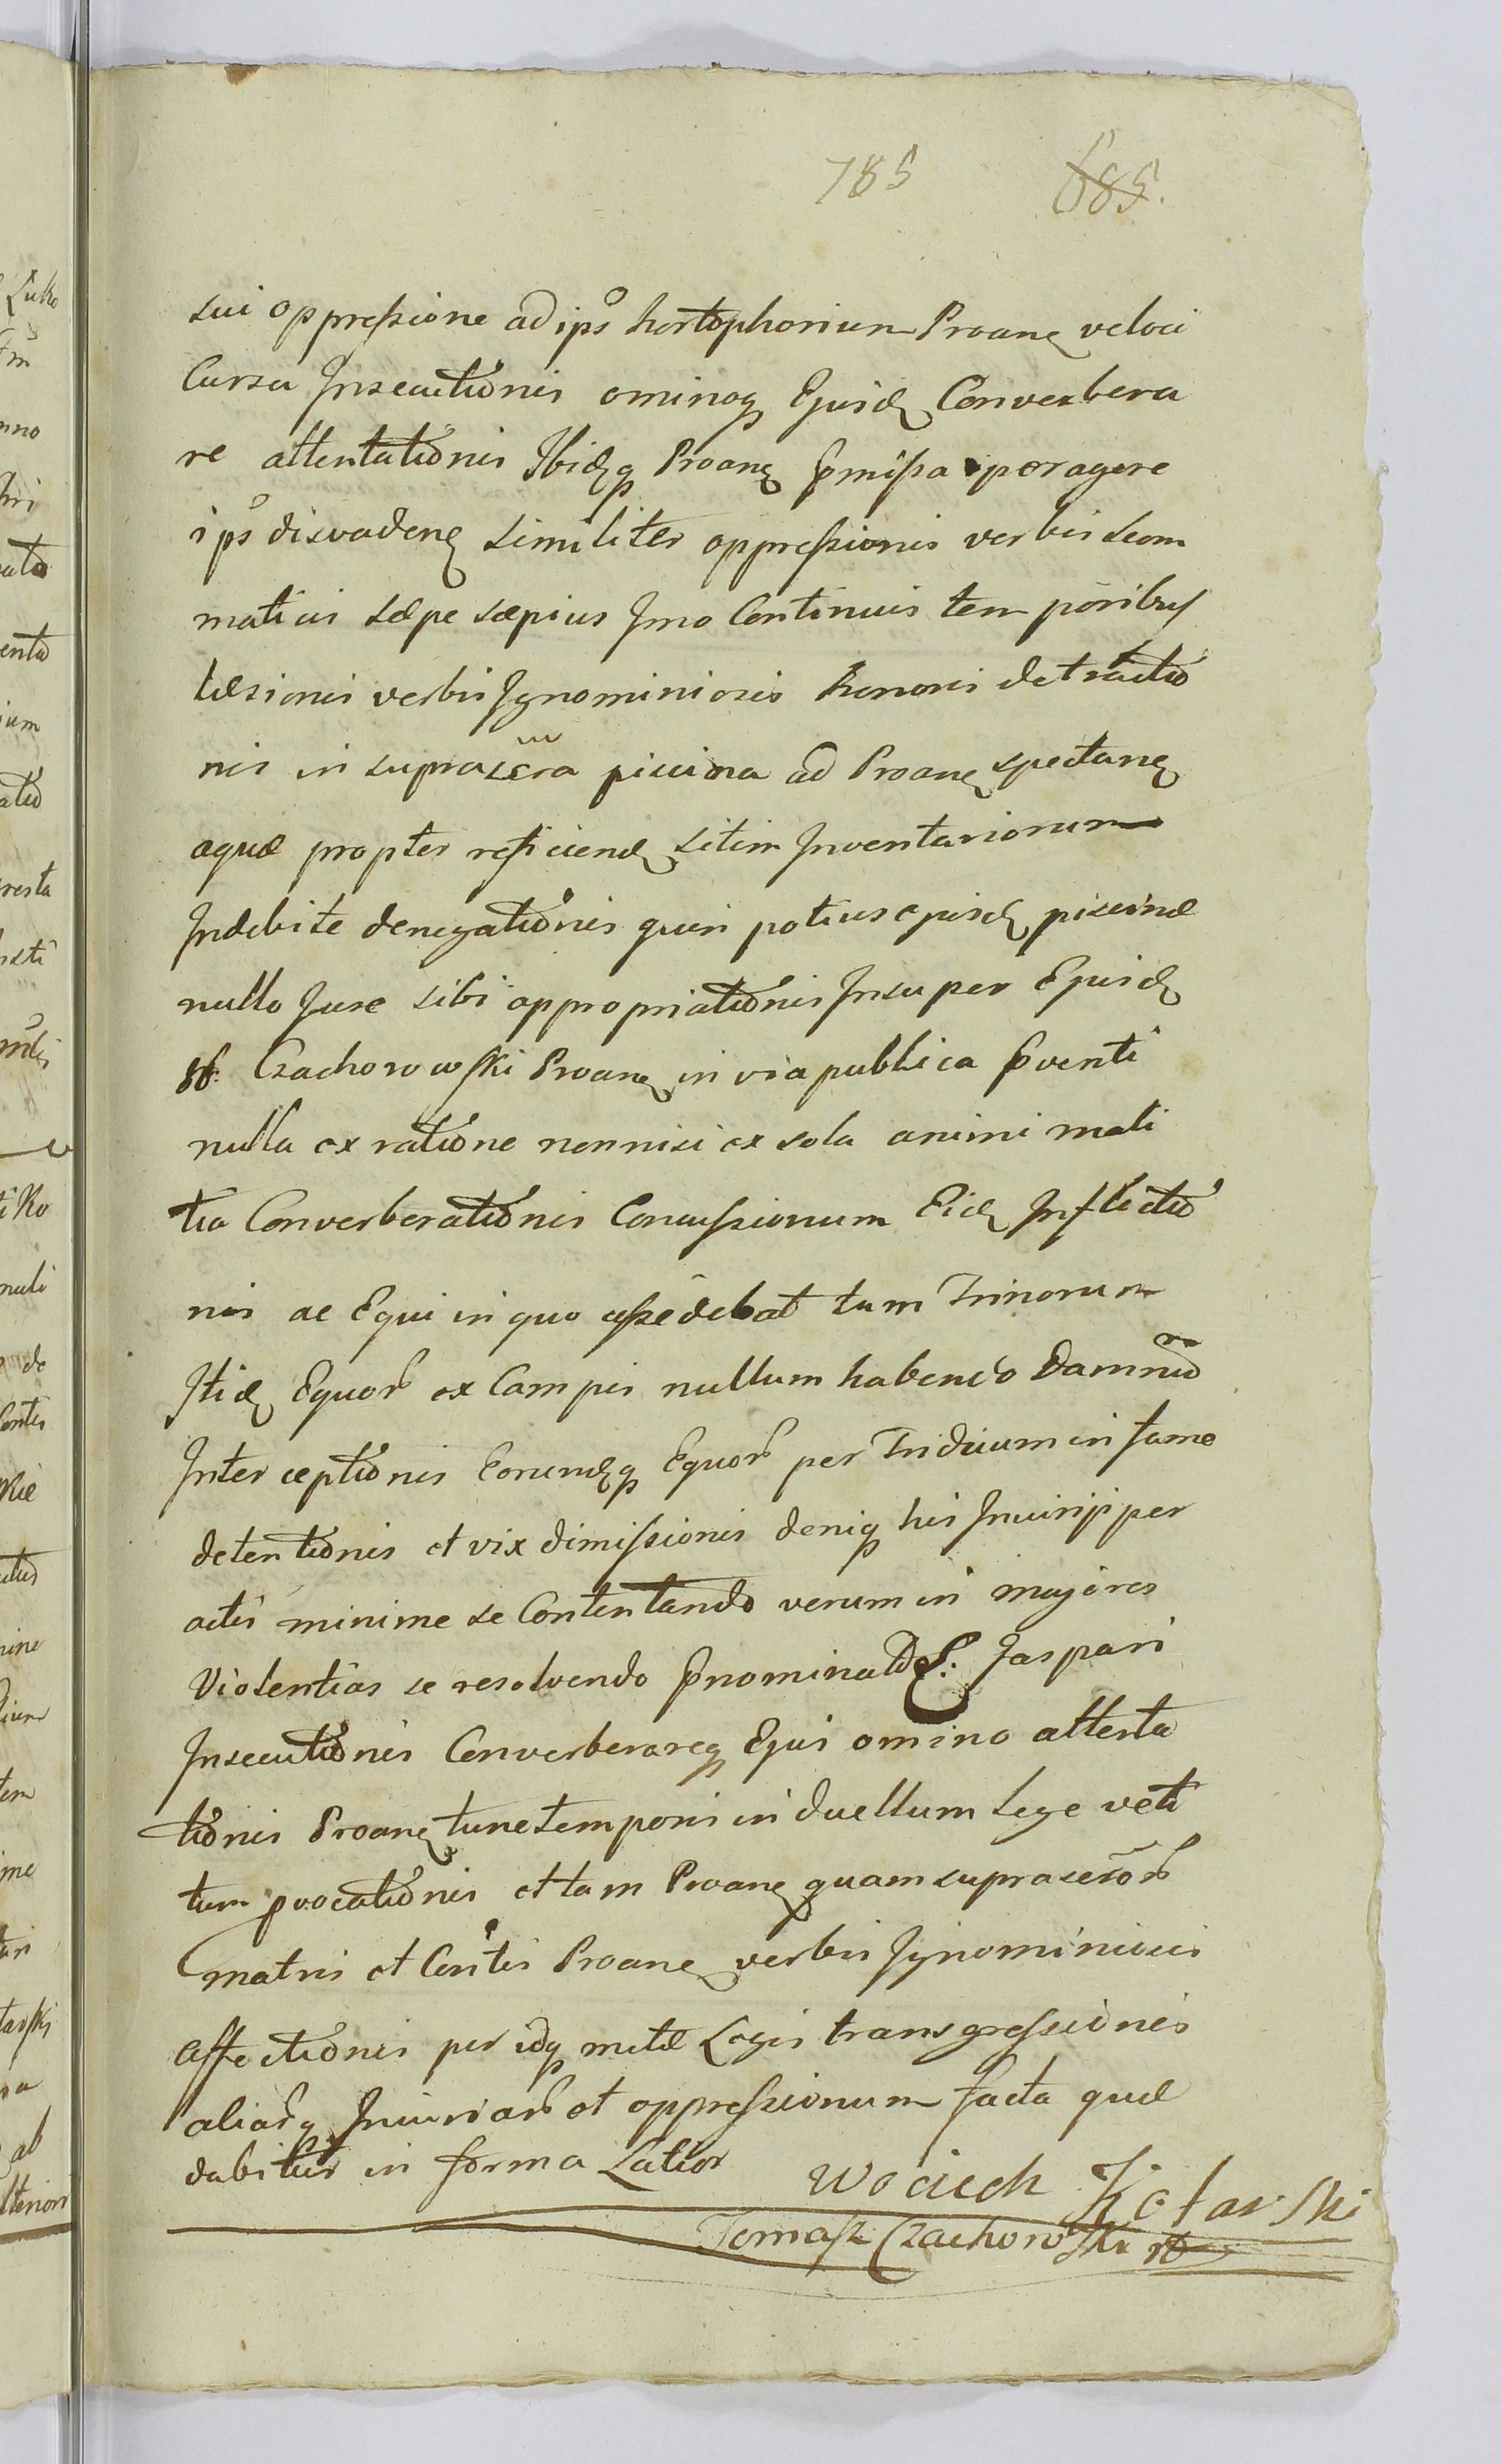 785 685.
sui oppressione ad ips hortophorium Proang veloci
Cursu Insecutionis ominoq Ejusd Converbera
re attentationis Ibidq Proang pmissa peragere
ips disvadeng similiter oppressionis verbis scom
maticis sæpe sæpius Imo Continuis tem poribus
læsionis verbis Ignominiosis honoris detractio
nis in suprascra piscina ad Proang spectang
aquæ propter reficiend sitim Inventariorum
Indebite denegationis quin potius ejusd piscinæ
nullo Jure sibi appropriationis Insuper Ejusd
Czachorowski Proang in via publica pventi
nulla ex ratione nonnisi ex sola animi mali
tia Converberationis Concussionum Eid Inflictio
nis ac Equi in quo assedebat tum Trinorum
Itid Equor ex Campis nullum habendo Damnu
Interceptionis Eorundq Equor per Triduum in fame
detentionis et vix dimissionis deniq his Injurijs per
actis minime se Contentando verum in majores
Violentias se resolvendo pnominato G. Jaspari
Insecutionis Converberareq Ejus omino attenta
tionis Proang tunc temporis in duellum Lege veti
tum pvocationis et tam Proang quam suprascror
matris et Contis Proang verbis Ignominiosis
affectionis per idq metæ Legis transgressionis
aliarq Injuriar et oppressionum facta quæ
dabitur in forma Latior
Wociech Kotarski
Tomasz Czachorowski